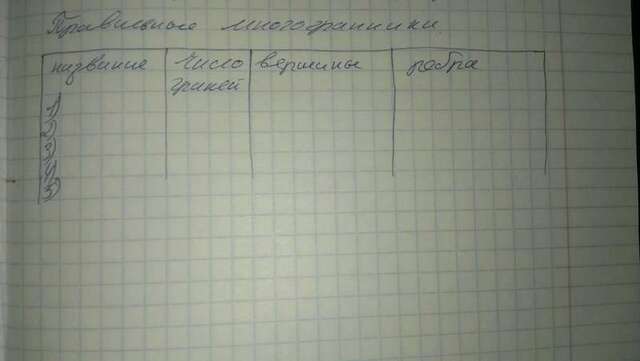 Правильные многогранники
название число вершины ребра
граней
1)
2)
3)
4)
5)